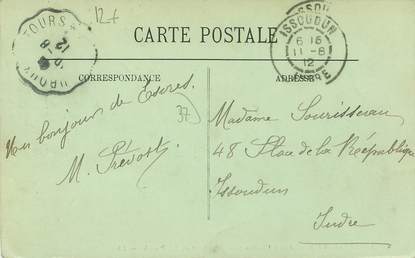 12+
TOURS
CARTE POSTALE
ISSOUDUN
6 15
11-8
12
CORRESPONDANCE
ADRESSE
Un bonjour de Esvres.
37
M. Prévost
Madame Sourisseau
48 Place de la République
Issoudun
Indre